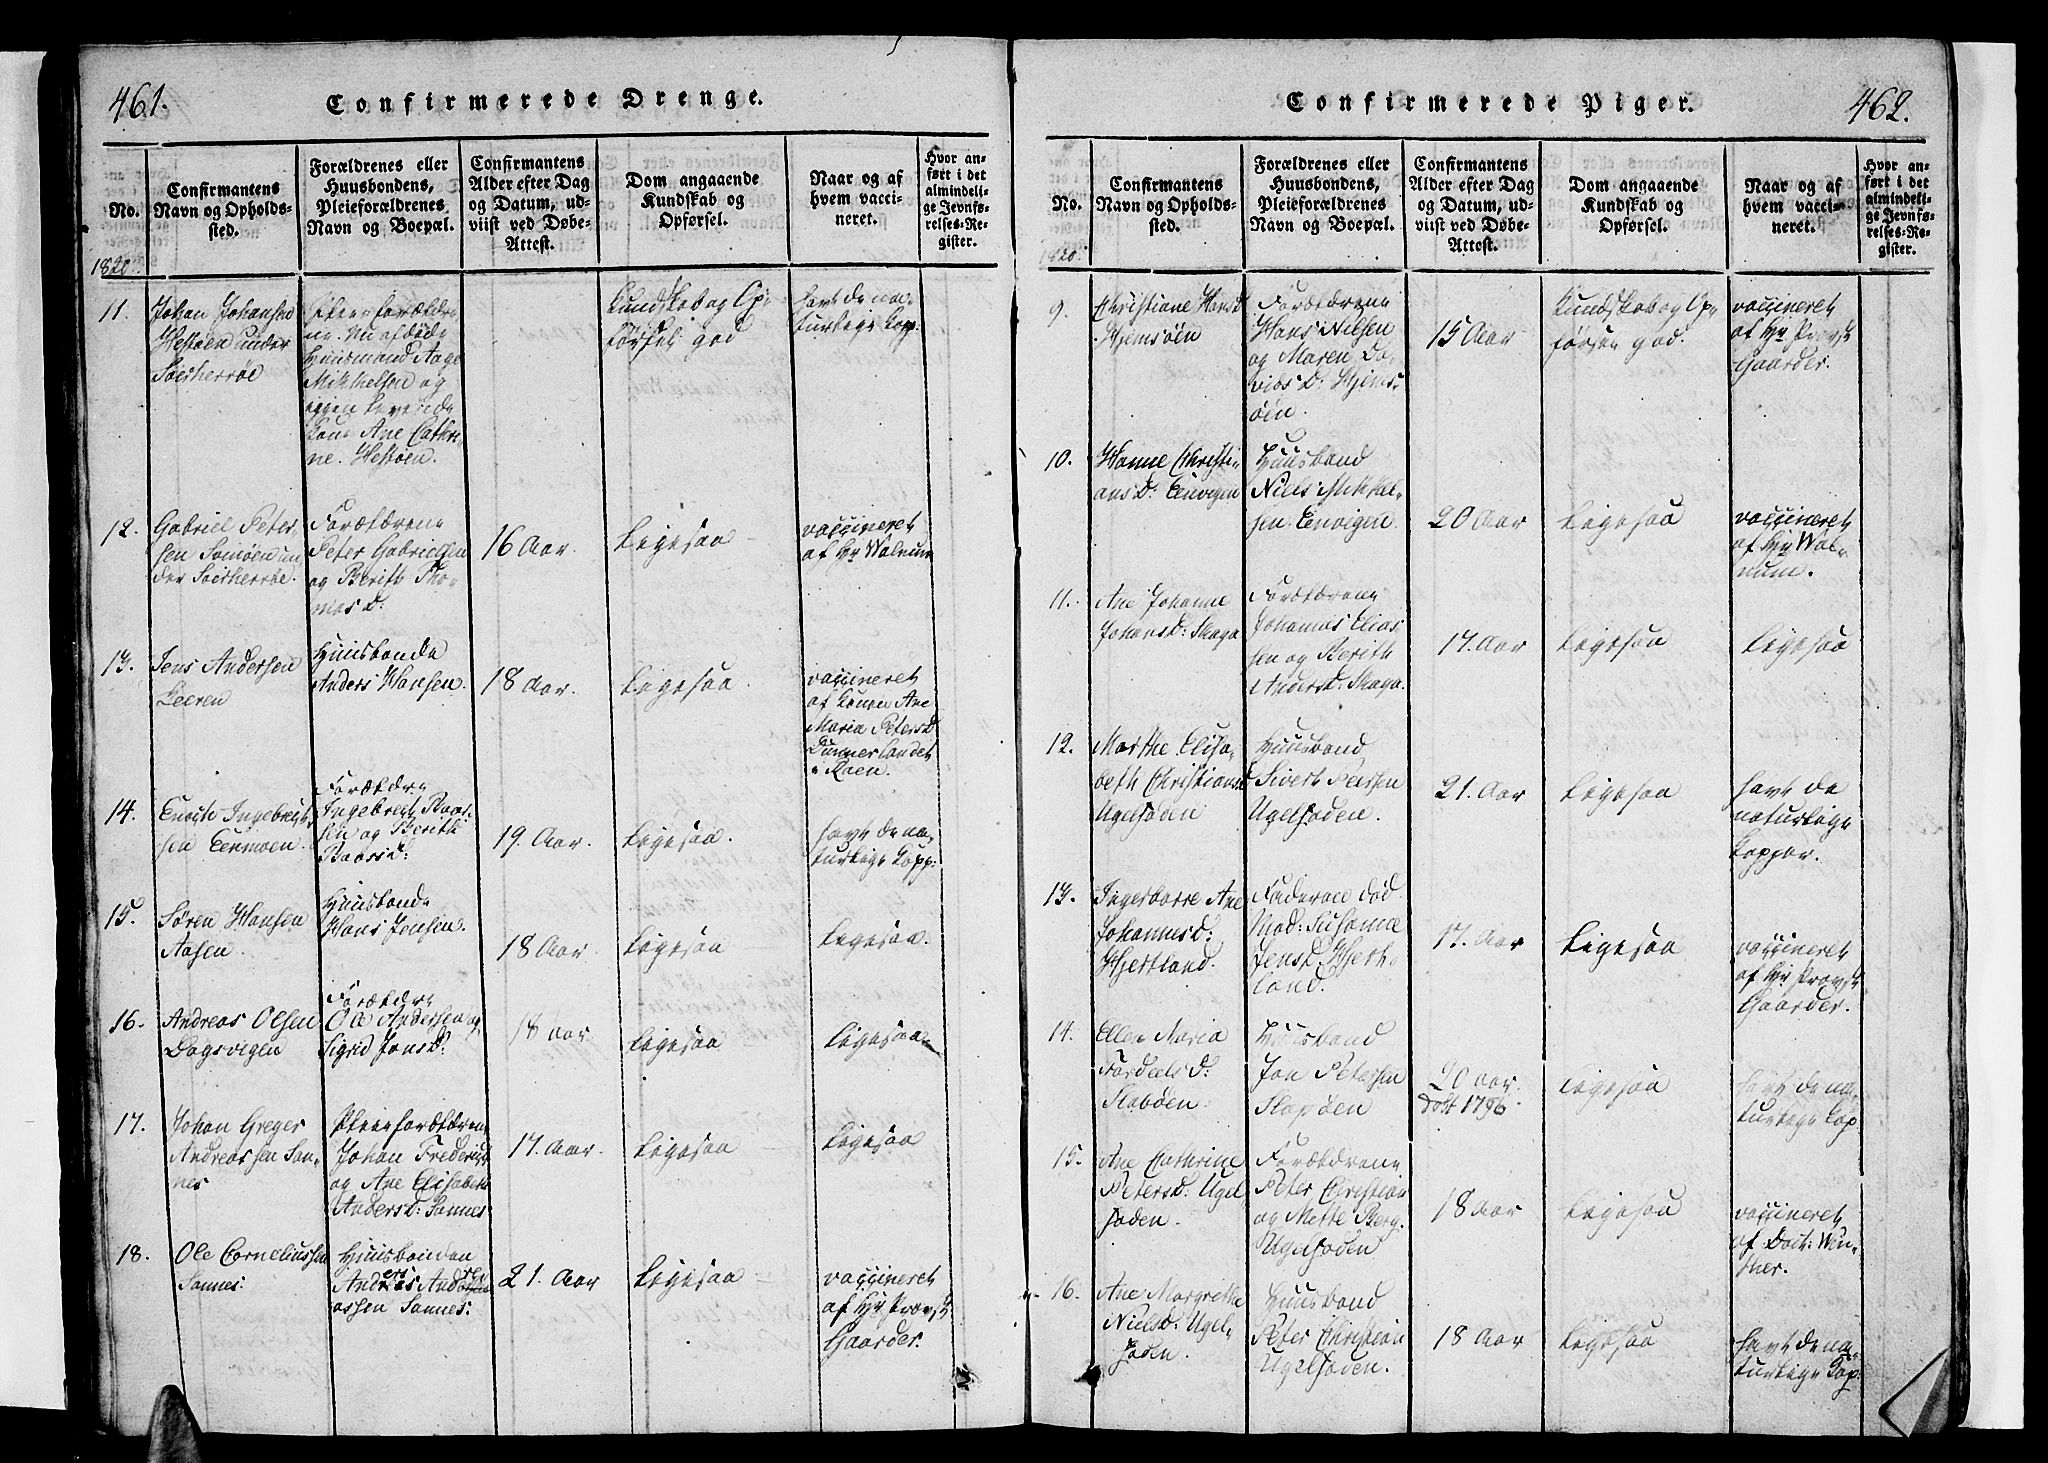 461.
Confirmerede Drenge.
No.
Confirmantens
Navn og Opholds-
sted.
Forældrenes eller
Huusbondens,
Pleieforældrenes
Navn og Boepæl.
Confirmantens
Alder efter Dag
og Datum, ud-
viist ved Døbe-
Attest.
Dom angaaende
Kundskab og
Opførsel.
Naar og af
hvem vacci-
neret.
Hvor an-
ført i det
almindeli-
ge Jevnfø-
relses-Re-
gister.
1820.
11.
Johan Johansen
Hestøen under
Pleieforældre
ne. Nu afdøde
Huusmand Aage
Mikkelsen og
igjen levende
Kone Ane Cathri-
ne. Hestøen.
Kundskab og Op-
førsel: god
havt de na-
turlige Kop.
12.
Gabriel Peter-
sen Somøen un-
der
Forældrene
Peter Gabrielsen
og Berith Tho-
mas D:
16 Aar.
Ligesaa
vaccineret
af Hr Walnum
13.
Jens Andersen
Leeren
Huusbonde
Anders Hansen.
18 Aar.
Ligesaa.
vaccineret
af Konen Ane
Maria Peters D
14.
Ingebreit-
sen
Forældre
Ingebreit Baar-
sen og Berith
Baars D:
19. Aar.
Ligesaa.
havt de na-
turlige Kopp:
15.
Søren Hansen
Aasen.
Huusbonde
Hans Jensen.
18 Aar.
Ligesaa
Ligesaa.
16.
Andreas Olsen
Dagsvigen
Forældre
Ole Andersen og
Sigrid Jons D:
18 aar
Ligesaa
Ligesaa.
17.
Johan Greger
Andreassen San-
nes
Pleieforældrene
Johan Frederick
og Ane Elisabeth
Anders D: Sannes
17. aar.
Ligesaa
Ligesaa
18.
Ole Corneliussen
Sannes:
Huusbonden
Sannes:
21. Aar
Ligesaa
vaccineret
af Hr Provst
Gaarder.
462.
Confirmerede Piger.
No.
Confirmantens
Navn og Opholds-
sted.
Forældrenes eller
Huusbondens,
Pleieforældrenes
Navn og Boepæl.
Confirmantens
Alder efter Dag
og Datum, ud-
viist ved Døbe-
Attest.
Dom angaaende
Kundskab og
Opførsel.
Naar og af
hvem vacci-
neret.
Hvor an-
ført i det
almindeli-
ge Jevnfø-
relses-Re-
gister.
1820.
9.
Christiane Hans D
Hjemsøen
Forældrene
Hans Nilsen
og Maren Da-
vids D: Hjems-
øen.
15 Aar
Kundskab og Op-
førsen god.
vaccineret
af Hr Provst
Gaarder.
10.
Hanne Christi-
ans D:
Huusbond
Niels Mikkel-
sen
20 Aar
Ligesaa
vaccineret
af Hr Wal-
num.
11.
Ane Johanne
Johans D: Skaga
Forældrene
Johannes Elias-
sen og Berith
Anders D: Skaga.
17. Aar
Ligesaa
Ligesaa
12.
Marthe Elisa-
beth Christians D
Ugelsøden
Huusbond
Sivert Peersen
Ugelsøden.
21. Aar
Ligesaa
havt de
naturlige
Kopper.
13.
Ingeborre Ane
Johannes D:
Hjertland.
Faderen død
Mod: Susanne
Jens D Hjert-
land.
17. Aar
Ligesaa
vaccineret
af Hr Provst
Gaarder.
14.
Ellen Maria
Fordeels D:
Huusbond
Jon Petersen
20 aar.
døbt 1796.
Ligesaa
havt de na-
turlige Kop
15.
Ane Cathrine
Peters D: Ugel-
søden.
Forældrene
Peter Christian
og Mette Berg.
Ugelsøden
18 Aar
Ligesaa
vaccineret
af Doct: Win-
ther.
16.
Ane Margrethe
Niels D: Ugel-
søden.
Huusbond
Peter Christian
Ugelsøden.
18 Aar
Ligesaa
havt de na-
turlige Kop: